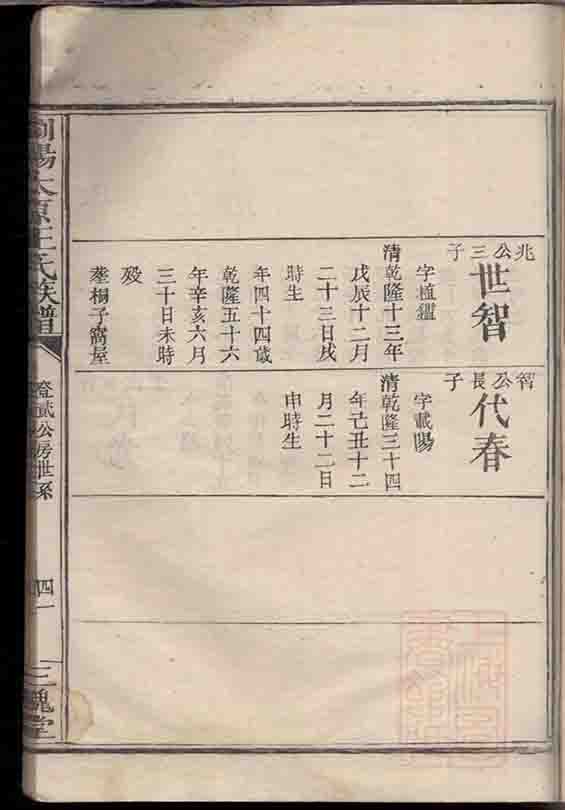 兆公三子
世智
字植韞
清乾隆十三年
戊辰十二月
二十三日戌
時生
年四十四歲
乾隆五十六
年辛亥六月
三十日未時
歿
葬桐子窩屋
智公長子
代春
字載陽
清乾隆三十四
年己丑十二
月二十二日
申時生
瀏陽太原王氏族譜
登貳公房世系
四一
三槐堂